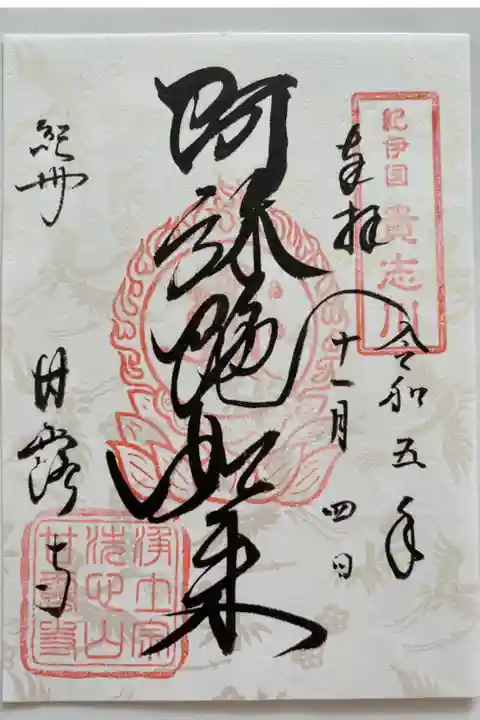 紀伊国 貴志川
奉拝
令和五年
十一月四日
阿弥陀如来
紀州
甘露寺
浄土宗
洗心山
甘露寺